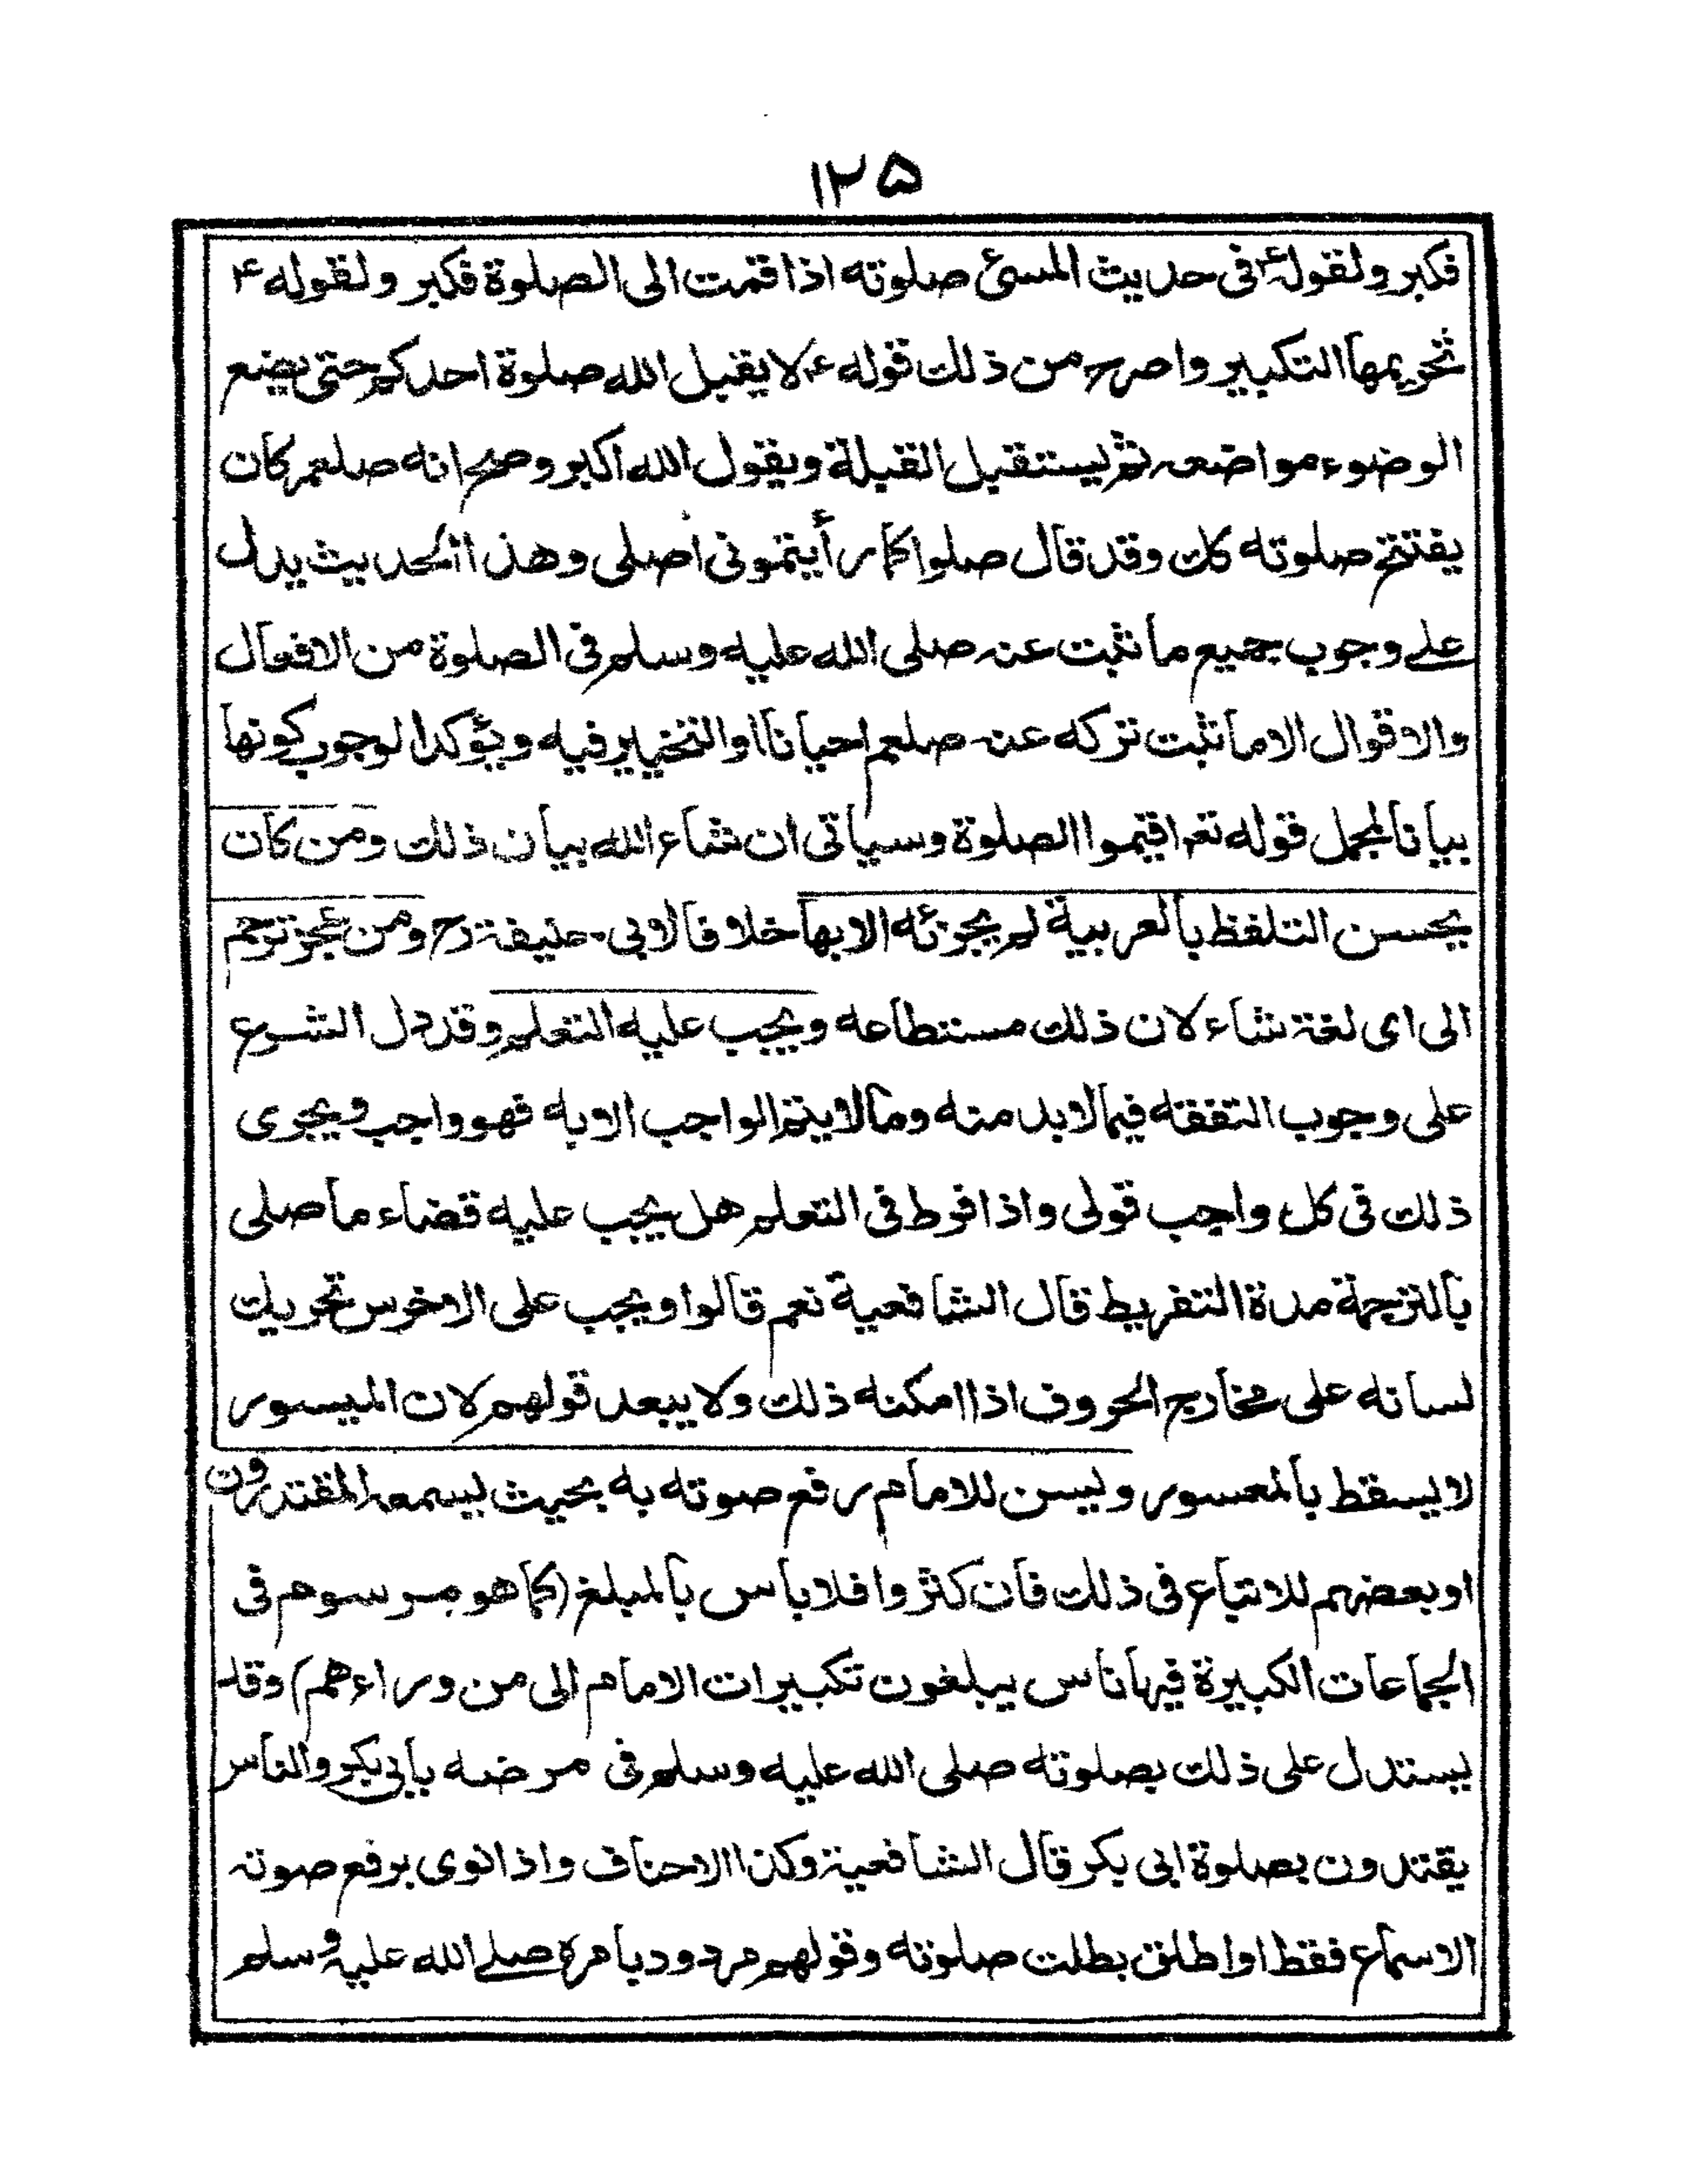 ۱۲۵
فكبر ولقوله ع فى حديث المسئ صلوته اذا قمت الى الصلوة فكبر ولقوله ع
تحريمها التكبير واصرح من ذلك قوله ع لا يقبل الله صلوة احدكم حتى يضع
الوضوء مواضعه ثم يستقبل القبلة ويقول الله اكبر وصح انه صلعم كان
يفتتح صلوته كك وقد قال صلوا كما رأيتمونى اصلى وهذا الحديث يدل
على وجوب جميع ما ثبت عنه صلى الله عليه وسلم فى الصلوة من الافعال
والاقوال الا ما ثبت تركه عنه صلعم احيانا او التخيير فيه ويؤكد الوجوب كونها
بيانا لمجمل قوله تعم اقيموا الصلوة وسياتى ان شاء الله بيان ذلك ومن كان
يحسن التلفظ بالعربية لم يجزئه الا بها خلافا لابى حنيفة رح ومن عجز ترجم
الى اى لغة شاء لان ذلك مستطاعه ويجب عليه التعلم وقد دل الشرع
على وجوب التفقه فيما لابد منه وما لا يتم الواجب الا به فهو واجب ويجرى
ذلك فى كل واجب قولى واذا فرط فى التعلم هل يجب عليه قضاء ما صلى
بالترجمة مدة التفريط قال الشافعية نعم قالوا ويجب على الاخرس تحريك
لسانه على مخارج الحروف اذا امكنه ذلك ولا يبعد قولهم لان الميسور
لا يسقط بالمعسور وليسن للامام رفع صوته به بحيث ليسمعه المقتدرون
او بعضهم للاتباع فى ذلك فان كثروا فلا باس بالمبلغ (كما هو مرسوم فى
الجماعات الكبيرة فيها ناس يبلغون تكبيرات الامام الى من وراءهم) وقد
يستدل على ذلك بصلوته صلى الله عليه وسلم فى مرضه بابى بكر والناس
يقتدون بصلوة ابى بكر قال الشافعية وكذا الاحناف واذا نوى برفع صوته
الاسماع فقط او اطلق بطلت صلوته وقولهم مردود بامره صلى الله عليه وسلم